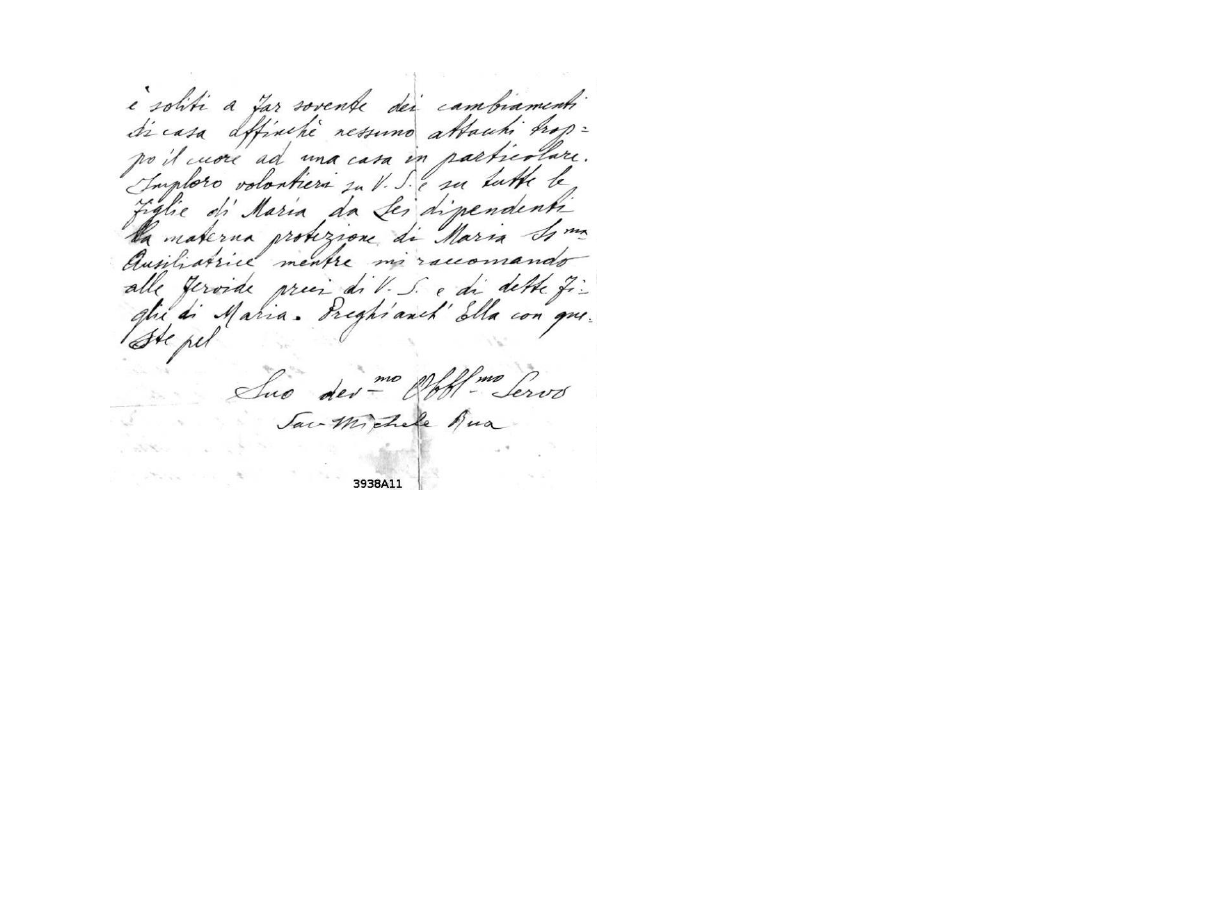 è soliti a far sovente dei cambiamenti
di casa affinchè nessuno attacchi trop=
po il cuore ad una casa in particolare.
Imploro volontieri su V. S. e su tutte le
figlie di Maria da Lei dipendenti
la materna protezione di Maria SS ma
Ausiliatrice mentre mi raccomando
alle fervide preci di V. S. e di dette Fi=
glie di Maria. Preghi anch' Ella con que=
ste pel
Suo dev mo Obbl mo Servo
Sac Michele Rua
3938A11